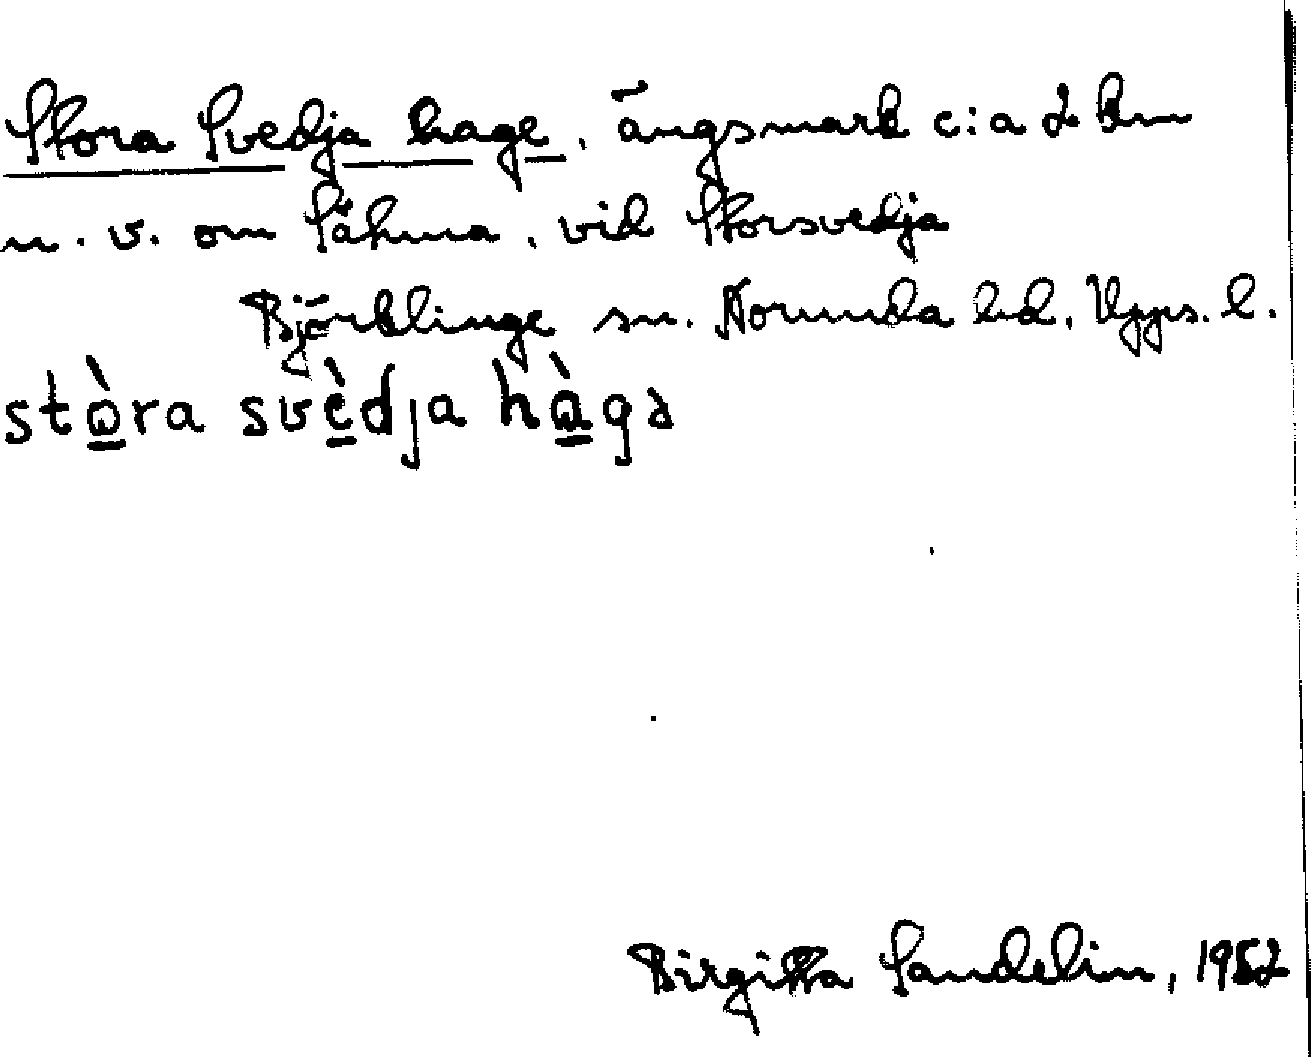 Stora Svedja hage, ängsmark c:a 2 km
n. v. om Såhma, vid Storsvedja
Björklinge sn. Norunda hd. Upps. l.
stò̱ra svè̱dja hà̱gə
Birgitta Sandelin, 1952